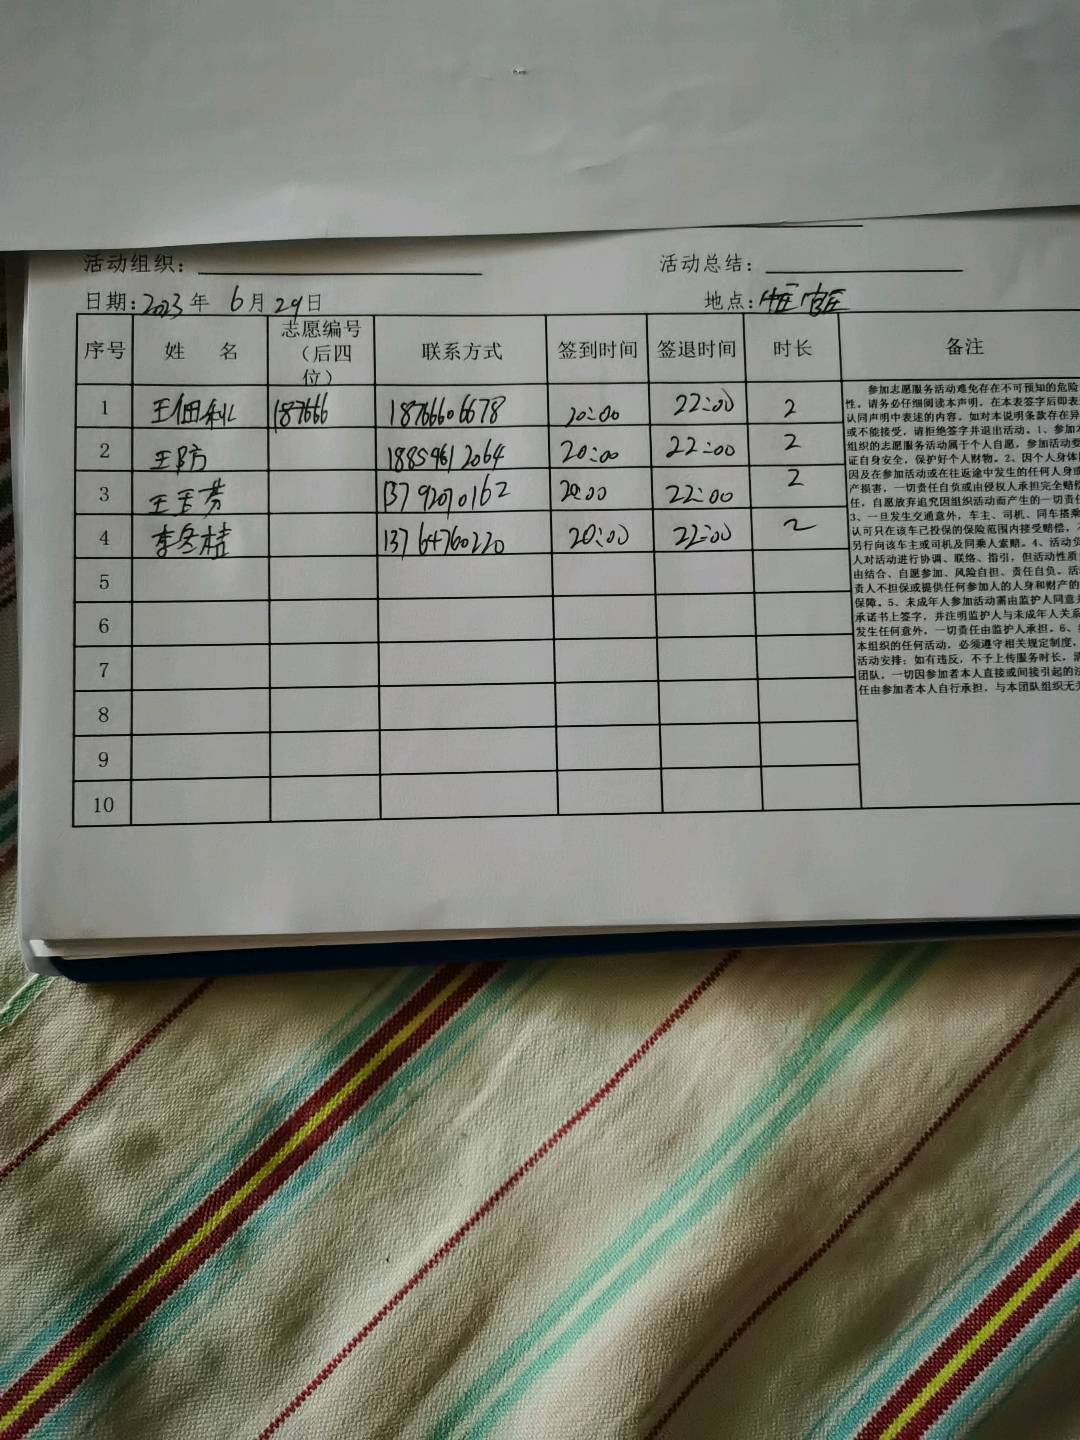 活动组织：
活动总结：
日期：2023年 6月29日
地点：
序号 姓 名 志愿编号（后四位） 联系方式 签到时间 签退时间 时长 备注
1 王佃利 187666 18766606678 20:00 22:00 2
2 王防 18859612064 20:00 22:00 2
3 王玉芳 13792070162 20:00 22:00 2
4 李冬桂 13764760220 20:00 22:00 2
5
6
7
8
9
10
参加志愿服务活动难免存在不可预知的危险
性，请务必仔细阅读本声明，在本表签字后即表
认同声明中表述的内容。如对本说明条款存在异
或不能接受，请拒绝签字并退出活动。1、参加本
组织的志愿服务活动属于个人自愿，参加活动要
证自身安全，保护好个人财物。2、因个人身体
因及在参加活动或在往返途中发生的任何人身或
产损害，一切责任自负或由侵权人承担完全赔偿
任，自愿放弃追究因组织活动而产生的一切责任
3、一旦发生交通意外，车主、司机、同车搭乘
认可只在该车已投保的保险范围内接受赔偿，
另行向该车主或司机及同乘人索赔。4、活动负
人对活动进行协调、联络、指引，但活动性质
由结合、自愿参加、风险自担、责任自负。活
责人不担保或提供任何参加人的人身和财产的
保障。5、未成年人参加活动需由监护人同意并
承诺书上签字，并注明监护人与未成年人关系
发生任何意外，一切责任由监护人承担。6、
本组织的任何活动，必须遵守相关规定制度，
活动安排；如有违反，不予上传服务时长，清
团队。一切因参加者本人直接或间接引起的法
任由参加者本人自行承担，与本团队组织无关